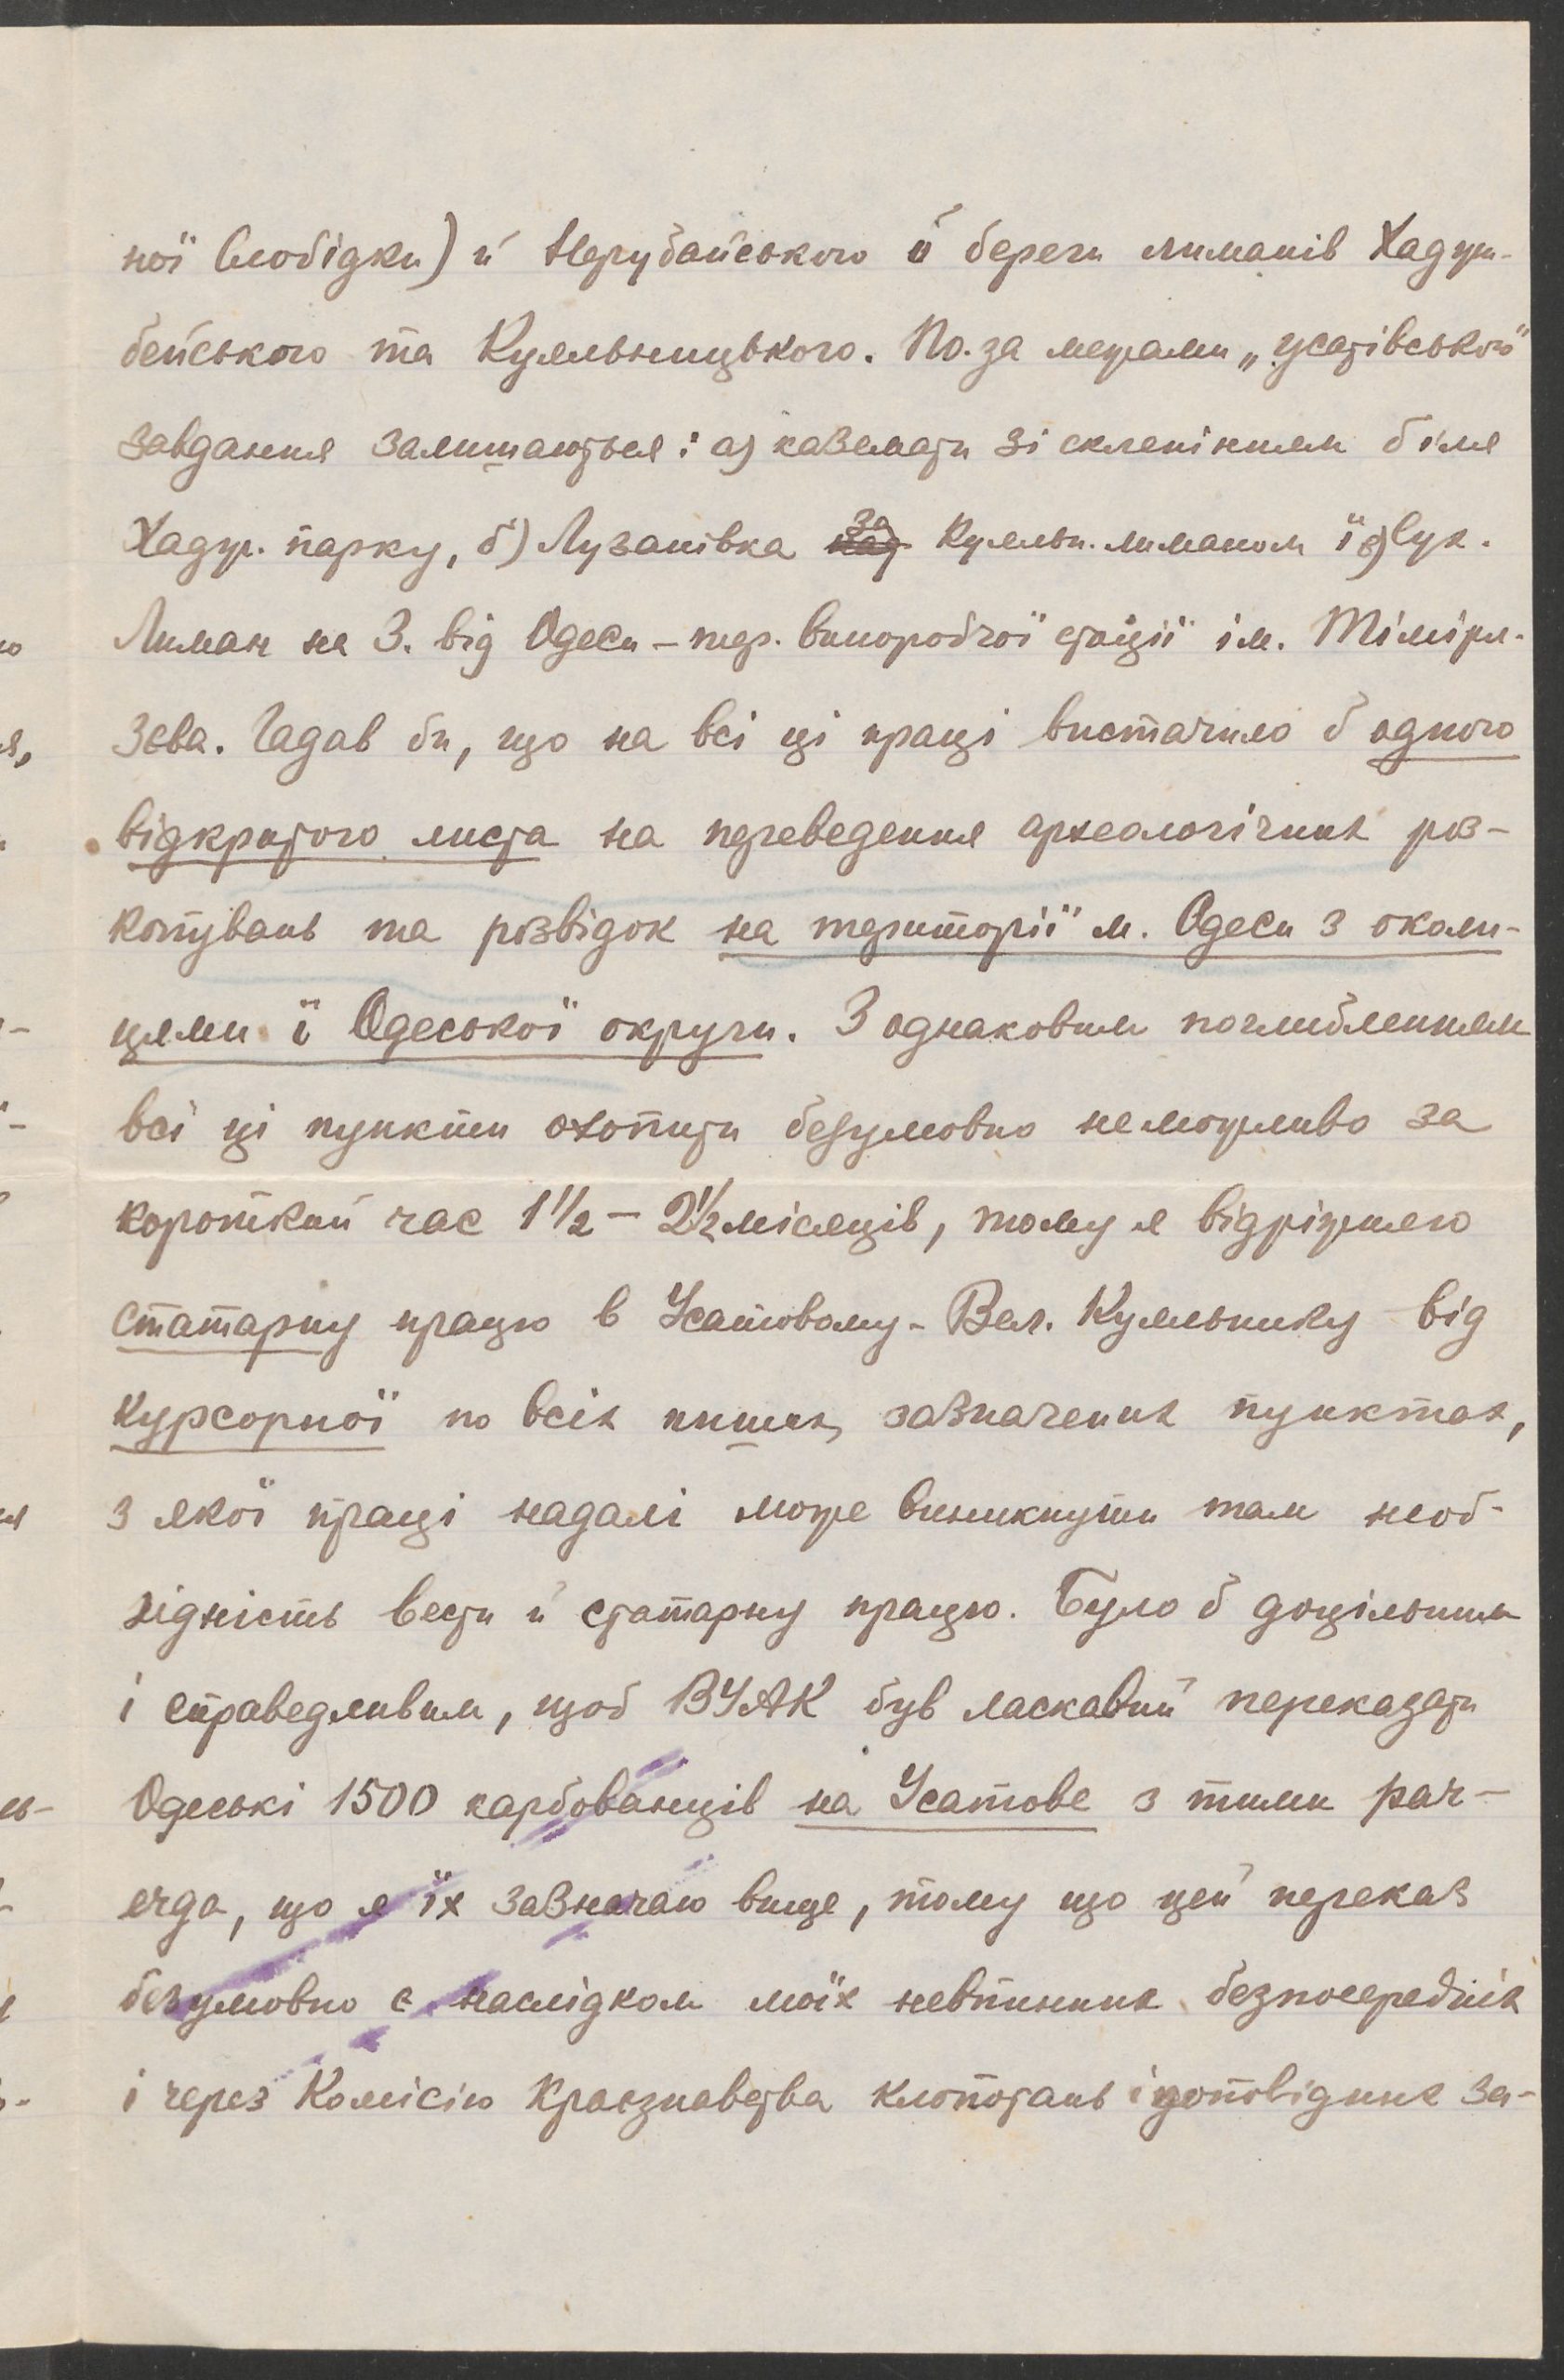 ної Слобідки) й Нерубайського й береги лиманів Хаджи-
бейського та Куяльницького. По-за межами „усатівського“
завдання залишаються: а) каземати зі склепінням біля
Хадж. парку, б) Лузанівка за Куяльн. лиманом й в) Сух.
Лиман на З. від Одеси – тер. виноробчої стації ім. Тімірл-
зєва. Гадав би, що на всі ці праці вистачило б одного
відкритого листа на переведення археологічних роз-
копувань та розвідок на території м. Одеси з околи-
цями й Одеської округи. З однаковим поглибленням
всі ці пункти охопити безумовно неможливо за
короткий час 1½ – 2½ місяців, тому я відріжняю
статарну працю в Усатовому-Вел. Куяльнику від
курсорної по всіх инших, зазначених пунктах,
з якої праці надалі може виникнути там необ-
хідність вести й статарну працю. Було б доцільним
і справедливим, щоб ВУАК був ласкавий переказати
Одеські 1500 карбованців на Усатове з тими рач-
ендa, що я їх зазначаю вище, тому що цей переказ
безумовно є наслідком моїх невпинних безпосередніх
і через Комісію Краєзнавства клопотань і доповідних за-